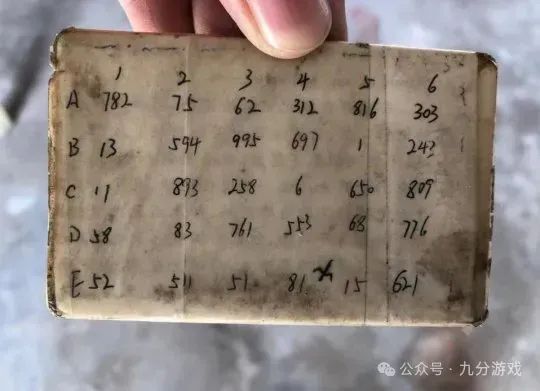 1 2 3 4 5 6
A 782 75 62 312 816 303
B 13 594 995 697 1 243
C 11 893 258 6 650 809
D 58 83 761 553 68 776
E 52 511 51 81 15 621
公众号·九分游戏